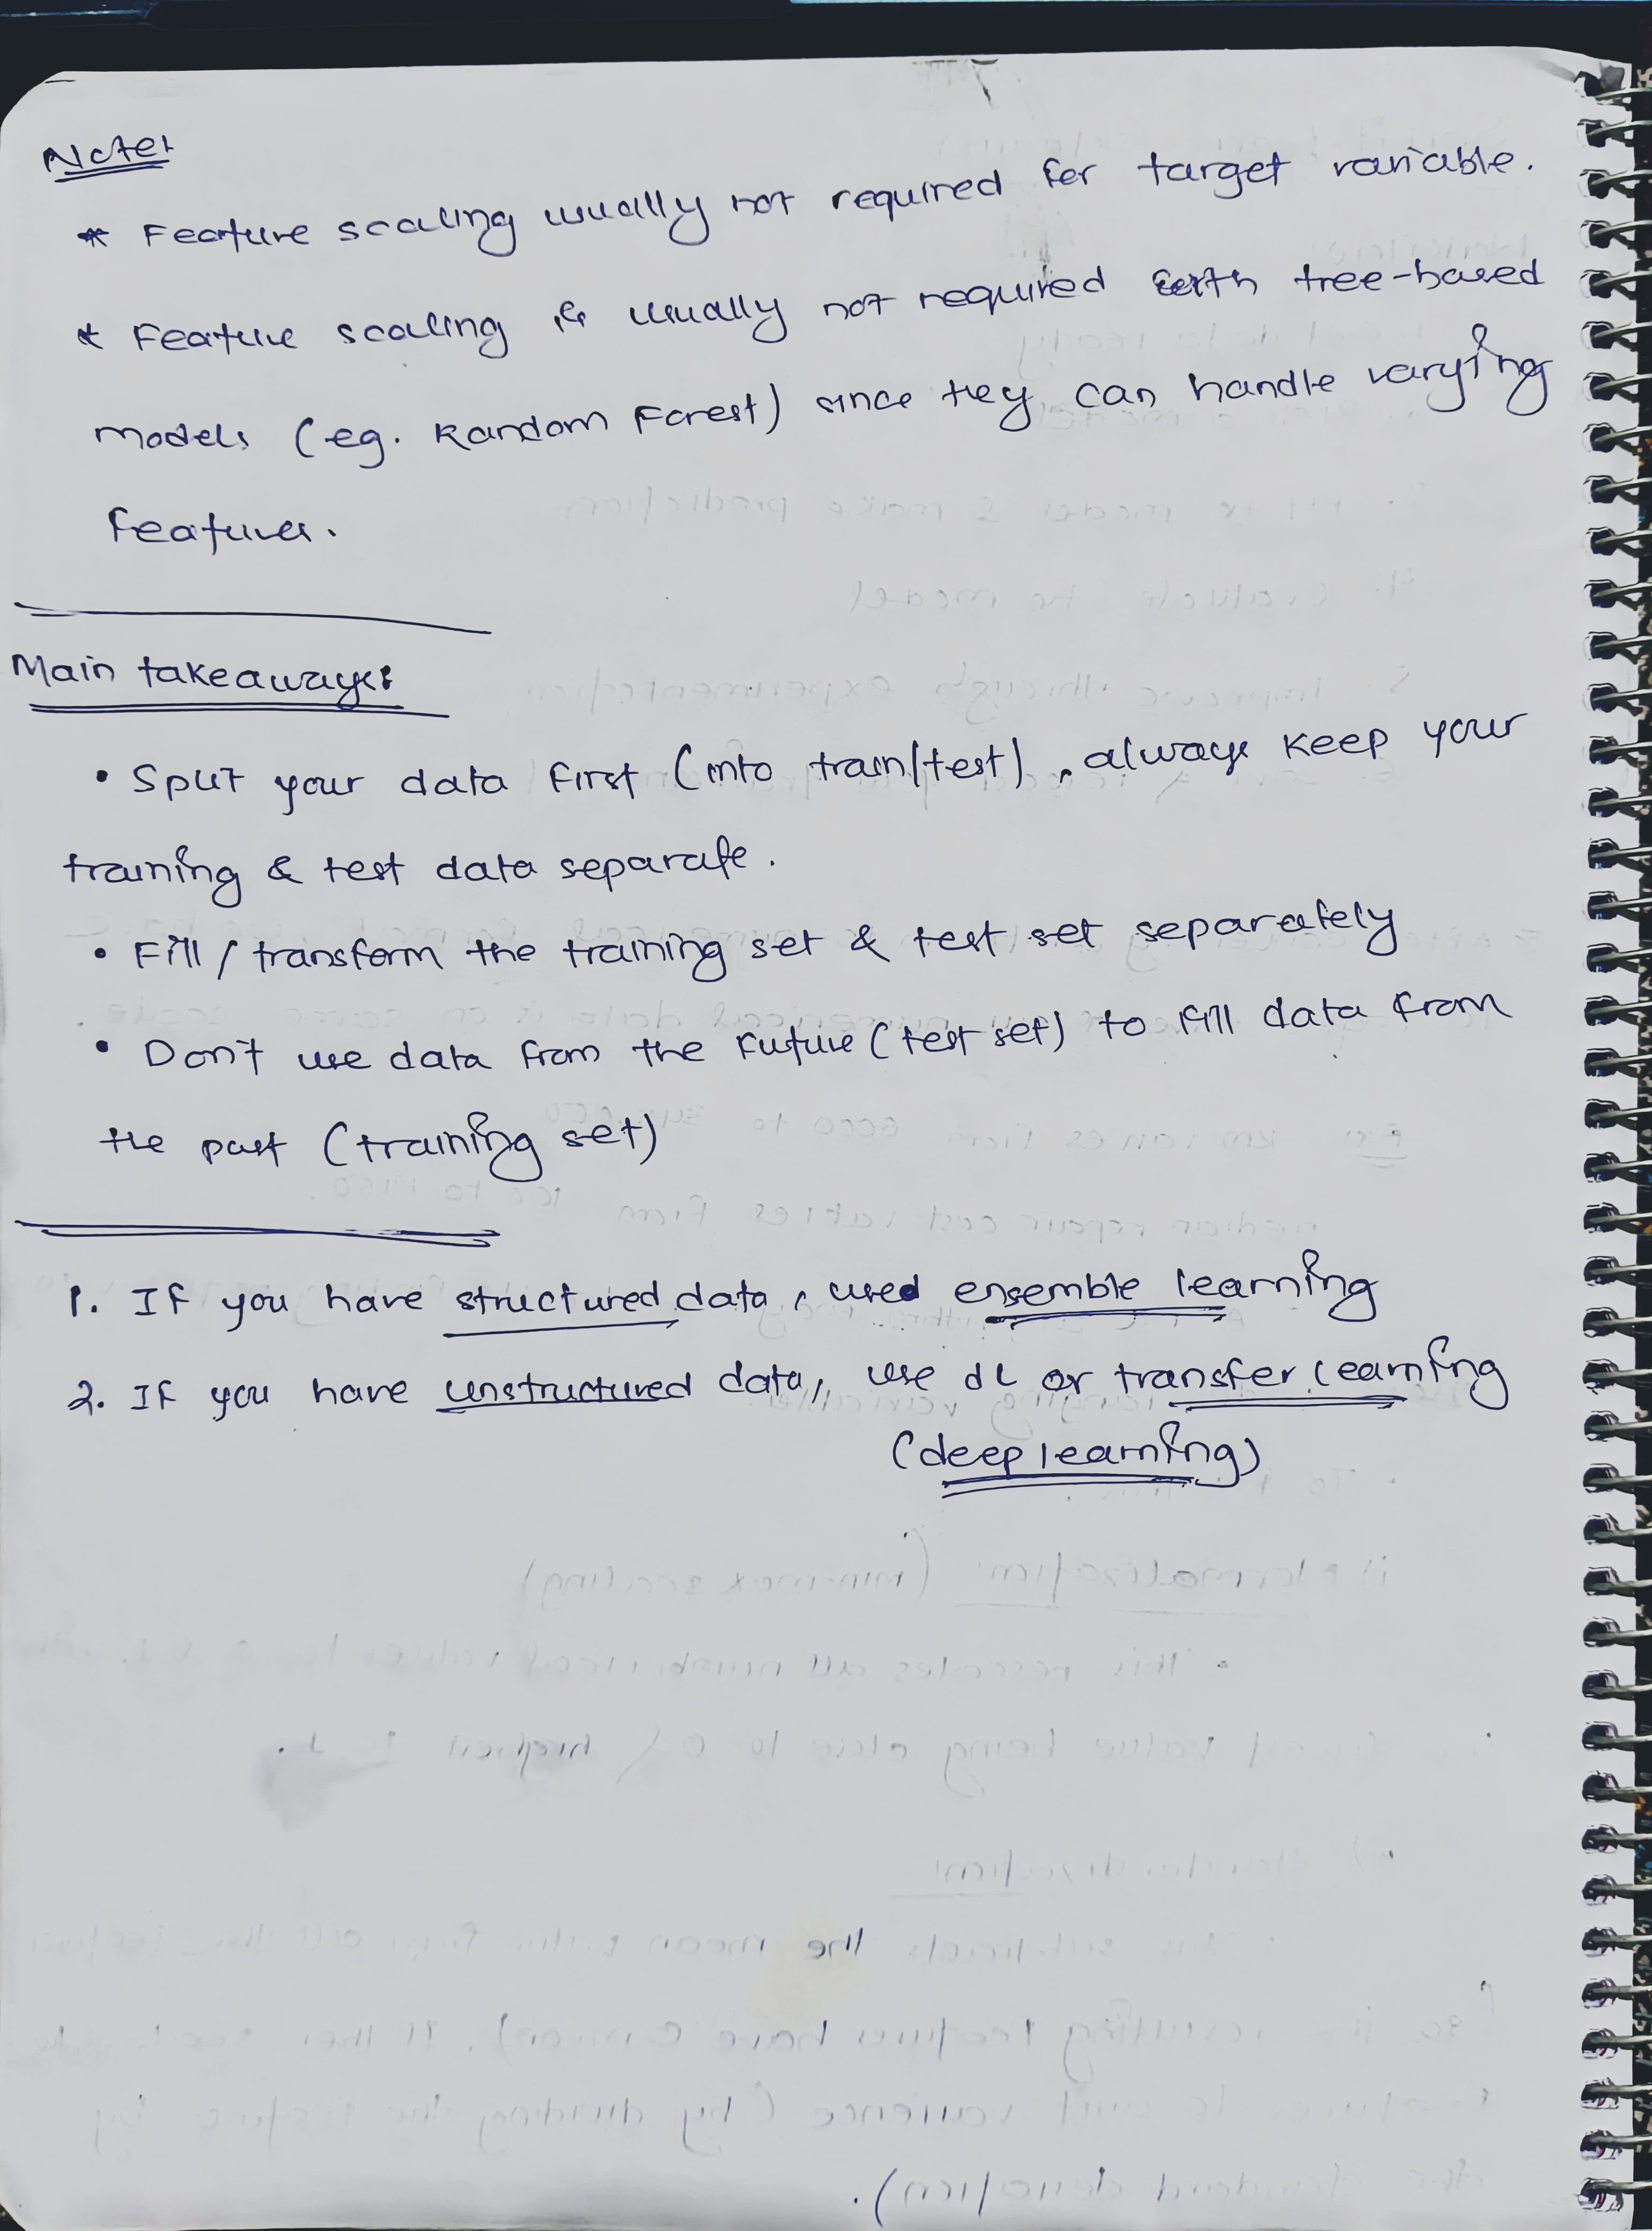 Note:
* Feature scaling usually not required for target variable.
* Feature scaling is usually not required with tree-based
models (eg. Random Forest) since they can handle varying
features.
Main takeaways:
• Split your data first (into train/test), always keep your
training & test data separate.
• Fill / transform the training set & test set separately
• Don't use data from the future (test set) to fill data from
the past (training set)
1. If you have structured data, used ensemble learning
2. If you have unstructured data, use dL or transfer learning
(deep learning)